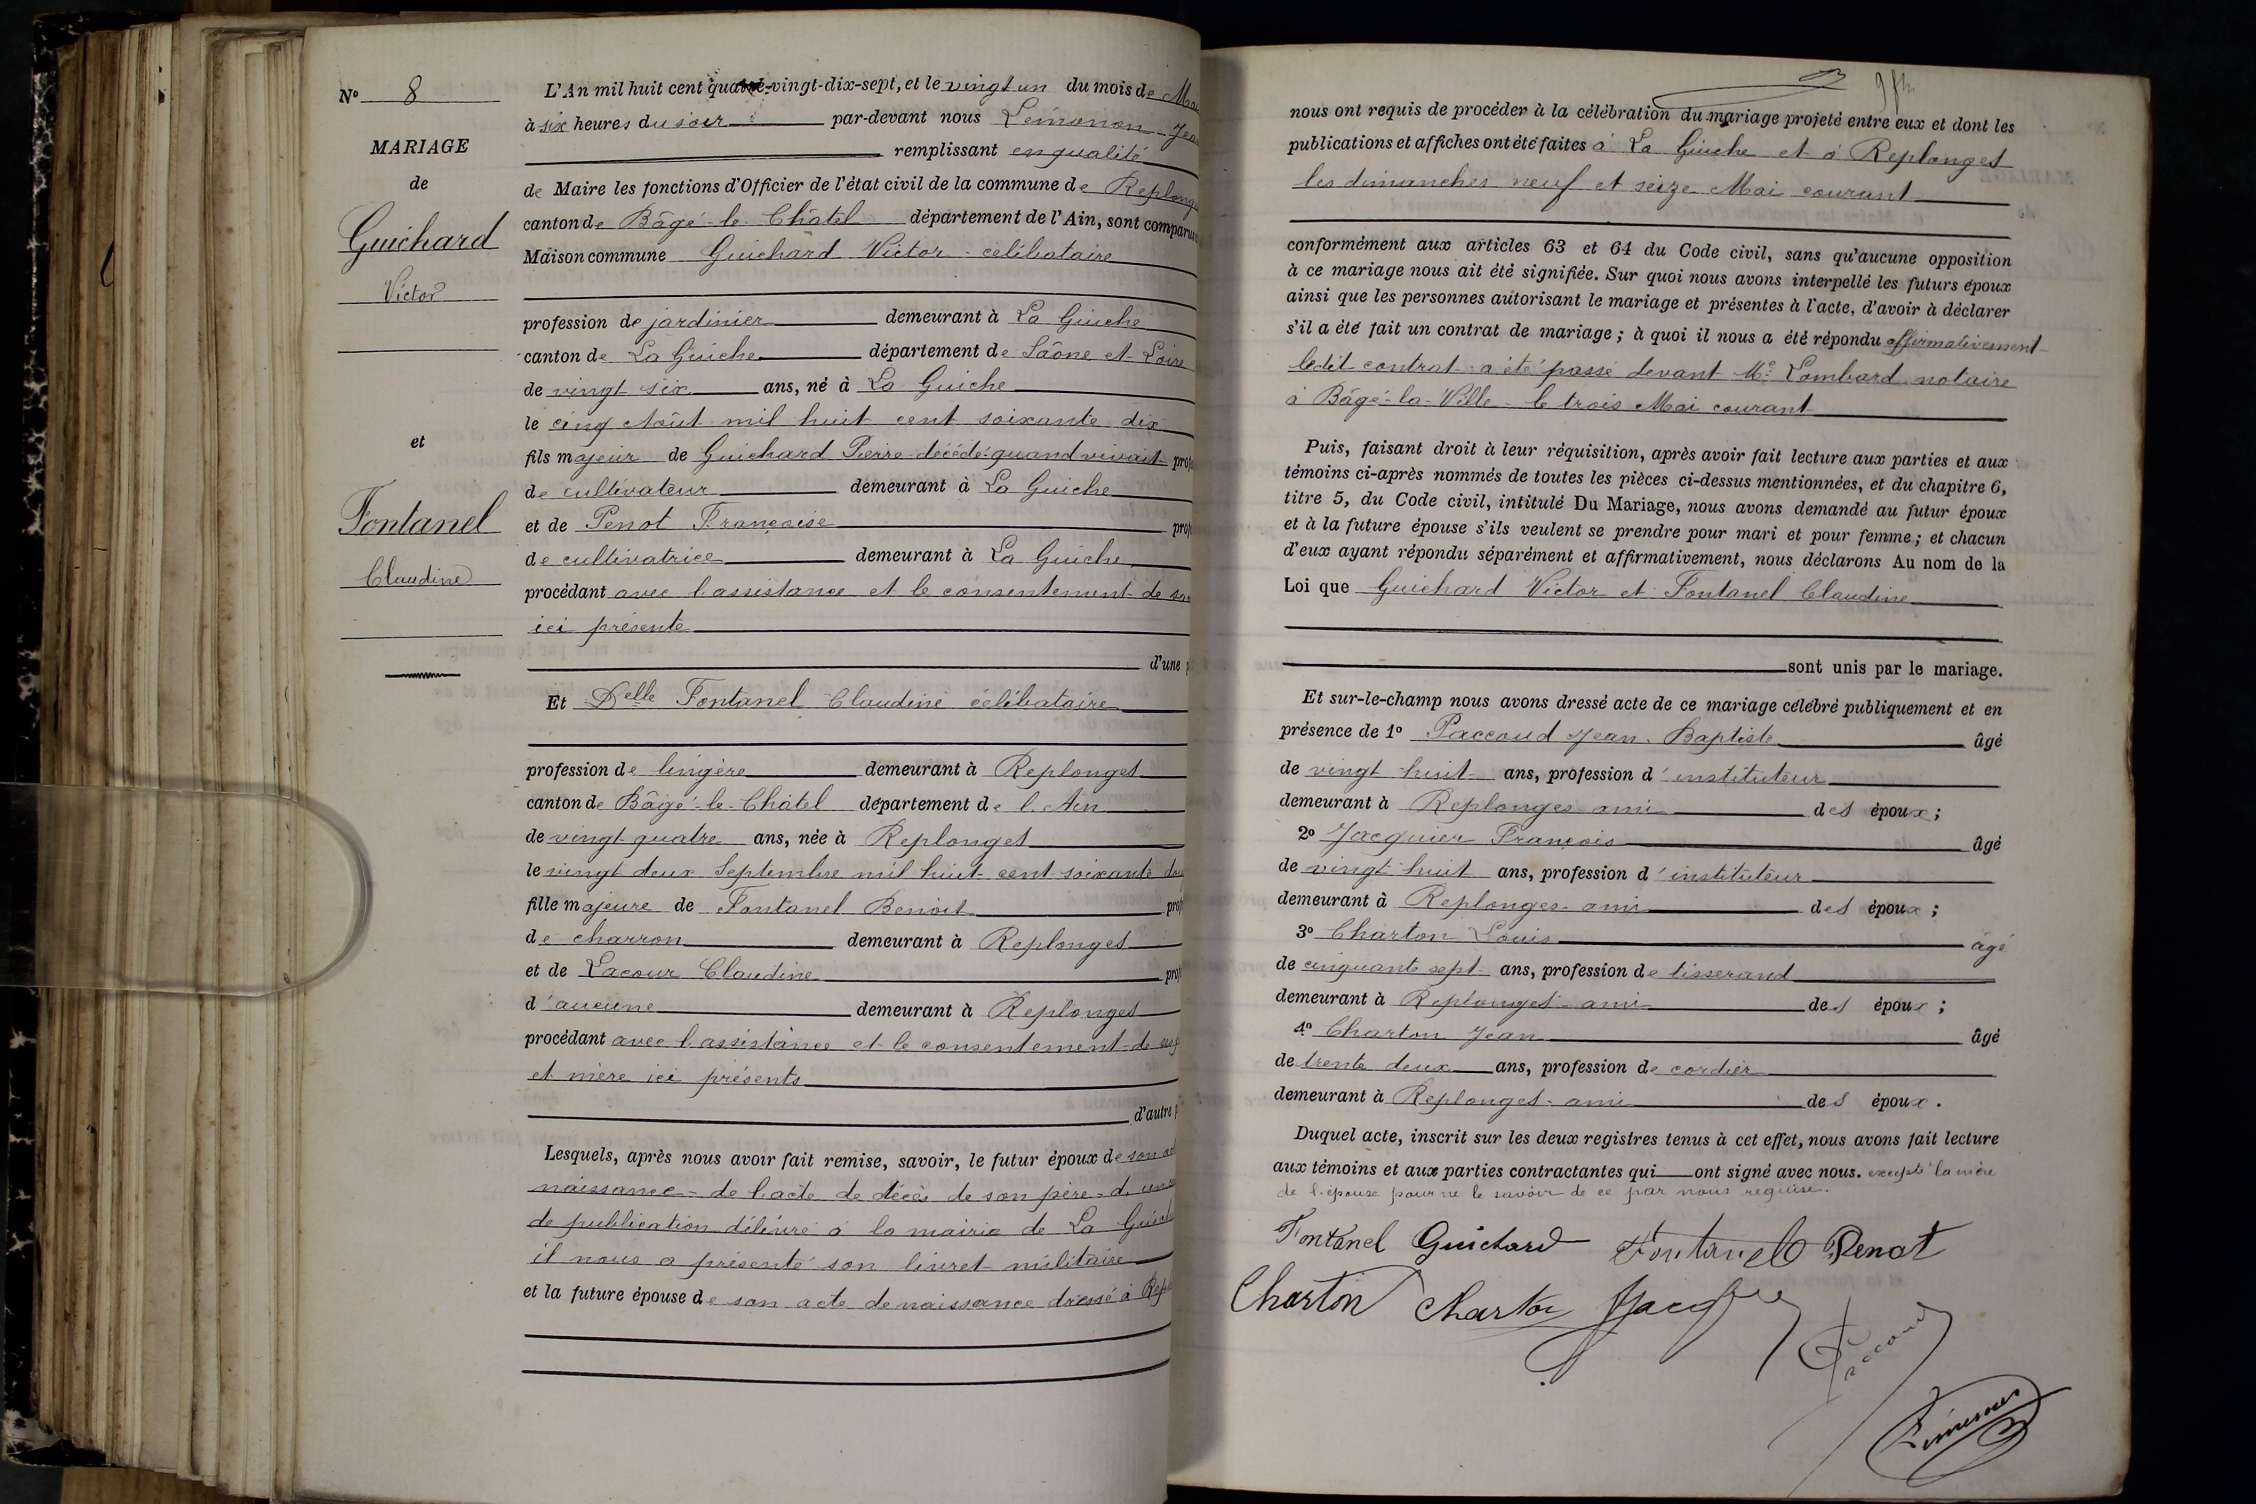 N° 8
MARIAGE
de
Guichard
Victor
et
Fontanel
Claudine
L'An mil huit cent quatre-vingt-dix-sept, et le vingt un du mois de Mai
à six heures du soir par-devant nous Lémonon Jea
remplissant en qualité
de Maire les fonctions d'Officier de l'état civil de la commune de Replonge
canton de Bâgé-le-Châtel département de l'Ain, sont comparu
Maison commune Guichard Victor - célibataire
profession de jardinier demeurant à La Guiche
canton de La Guiche département de Saône et Loire
de vingt six ans, né à La Guiche
le cinq Août mil huit cent soixante dix
fils majeur de Guichard Pierre décédé quand vivait prof
de cultivateur demeurant à La Guiche
et de Penot Françoise prof
de cultivatrice demeurant à La Guiche
procédant avec l'assistance et le consentement de sa
ici présente
d'une p
Et Delle Fontanel Claudine célibataire
profession de lingère demeurant à Replonges
canton de Bâgé-le-Châtel département de l'Ain
de vingt quatre ans, née à Replonges
le vingt deux Septembre mil huit cent soixante dou
fille majeure de Fontanel Benoit prof
de charron demeurant à Replonges
et de Lacour Claudine prof
d'aucune demeurant à Replonges
procédant avec l'assistance et le consentement de ses
et mère ici présents
d'autre p
Lesquels, après nous avoir fait remise, savoir, le futur époux de son ac
naissance - de l'acte de décès de son père - d'un
de publication délivré à la mairie de La Guiche
il nous a présenté son livret militaire
et la future épouse de son acte de naissance dressé à Repl
nous ont requis de procéder à la célébration du mariage projeté entre eux et dont les
publications et affiches ont été faites à La Guiche et à Replonges
les dimanches neuf et seize Mai courant
conformément aux articles 63 et 64 du Code civil, sans qu'aucune opposition
à ce mariage nous ait été signifiée. Sur quoi nous avons interpellé les futurs époux
ainsi que les personnes autorisant le mariage et présentes à l'acte, d'avoir à déclarer
s'il a été fait un contrat de mariage ; à quoi il nous a été répondu affirmativement
ledit contrat a été passé devant Me Lombard notaire
à Bâgé-la-Ville le trois Mai courant
Puis, faisant droit à leur réquisition, après avoir fait lecture aux parties et aux
témoins ci-après nommés de toutes les pièces ci-dessus mentionnées, et du chapitre 6,
titre 5, du Code civil, intitulé Du Mariage, nous avons demandé au futur époux
et à la future épouse s'ils veulent se prendre pour mari et pour femme ; et chacun
d'eux ayant répondu séparément et affirmativement, nous déclarons Au nom de la
Loi que Guichard Victor et Fontanel Claudine
sont unis par le mariage.
Et sur-le-champ nous avons dressé acte de ce mariage célébré publiquement et en
présence de 1° Paccoud Jean-Baptiste âgé
de vingt huit ans, profession d'instituteur
demeurant à Replonges ami des époux ;
2° Jacquier François âgé
de vingt huit ans, profession d'instituteur
demeurant à Replonges ami des époux ;
3° Charton Louis âgé
de cinquante sept ans, profession de tisserand
demeurant à Replonges ami des époux ;
4° Charton Jean âgé
de trente deux ans, profession de cordier
demeurant à Replonges ami des époux.
Duquel acte, inscrit sur les deux registres tenus à cet effet, nous avons fait lecture
aux témoins et aux parties contractantes qui ont signé avec nous. excepté la mère
de l'épouse pour ne le savoir de ce par nous requise.
Fontanel Guichard Fontanel Penot
Charton Charton Jacquier
Paccoud
Lémonon